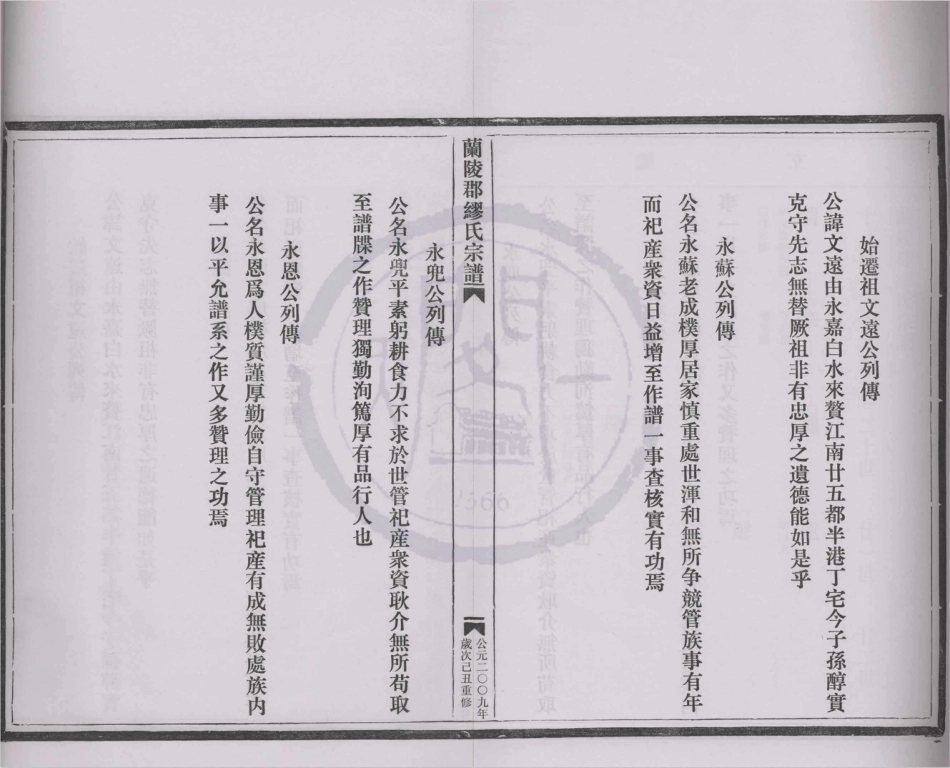 始遷祖文遠公列傳
公諱文遠由永嘉白水來贅江南廿五都半港丁宅今子孫醇實
克守先志無替厥祖非有忠厚之遺德能如是乎
永蘇公列傳
公名永蘇老成樸厚居家慎重處世渾和無所争競管族事有年
而祀産衆資日益增至作譜一事查核實有功焉
蘭陵郡繆氏宗譜
公元二〇〇九年
歲次己丑重修
永兜公列傳
公名永兜平素躬耕食力不求於世管祀産衆資耿介無所苟取
至譜牒之作贊理獨勤洵篤厚有品行人也
永恩公列傳
公名永恩爲人樸質謹厚勤儉自守管理祀産有成無敗處族内
事一以平允譜系之作又多贊理之功焉